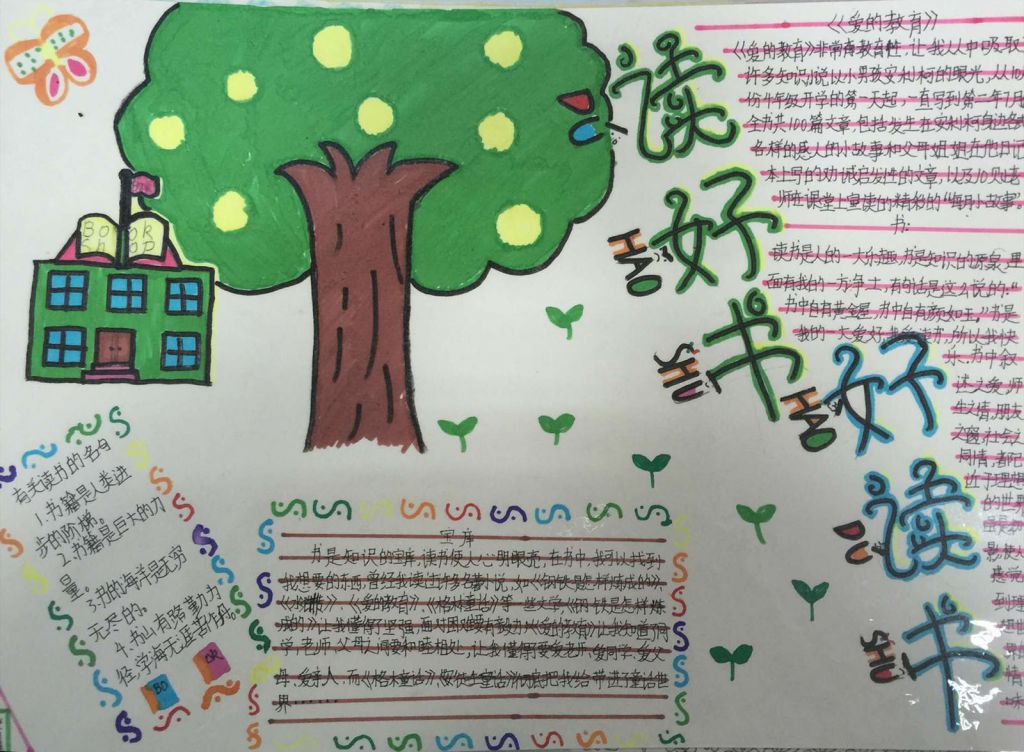 《爱的教育》
《爱的教育》非常有教育性,让我从中吸取
许多知识!说以小男孩安利柯的眼光,从10
份4年级开学的第一天起,一直写到第二年7月
全书共100篇文章,包括发生在安利柯身边各
各样的感人的小故事和父母姐姐在他日记
本上写的劝诫启发性的文章,以及10则老
师在课堂上宣读的精彩的"每月小故事"。
书:
读书是人的一大乐趣,书是知识的源泉,里
面有我的一方争土,有句话是这么说的:"
书中自有黄金屋,书中自有颜如玉。"书是
我的一大爱好,我爱读书,所以我快
乐、书中叙
述之爱,师
生之情,朋友
社会之
同情,都
近于理想
的世界
读
好
书
HAO
SHU
好
读
书
HAO
DU
SHU
Book
Shop
有关读书的名句
1.书籍是人类进
步的阶梯。
2.书籍是巨大的力
量。
3.书的海洋是无穷
无尽的。
4.书山有路勤为
径,学海无涯苦作舟。
BO
OK
宝库
书是知识的宝库,读书使人心明眼亮,在书中,我可以找到
我想要的东西,曾经我读过许多课小说,如《钢铁是怎样炼成的》
《爱的教育》、《格林童话》等一些文学,《钢铁是怎样炼
成的》让我懂得了坚强,面对困难要有毅力,《爱的教育》让我知道了同
学,老师,父母之间要和睦相处,让我懂得要爱老师,爱同学,爱父
母,爱亲人,而《格林童话》、《安徒生童话》彻底把我给带进了童话世
界……